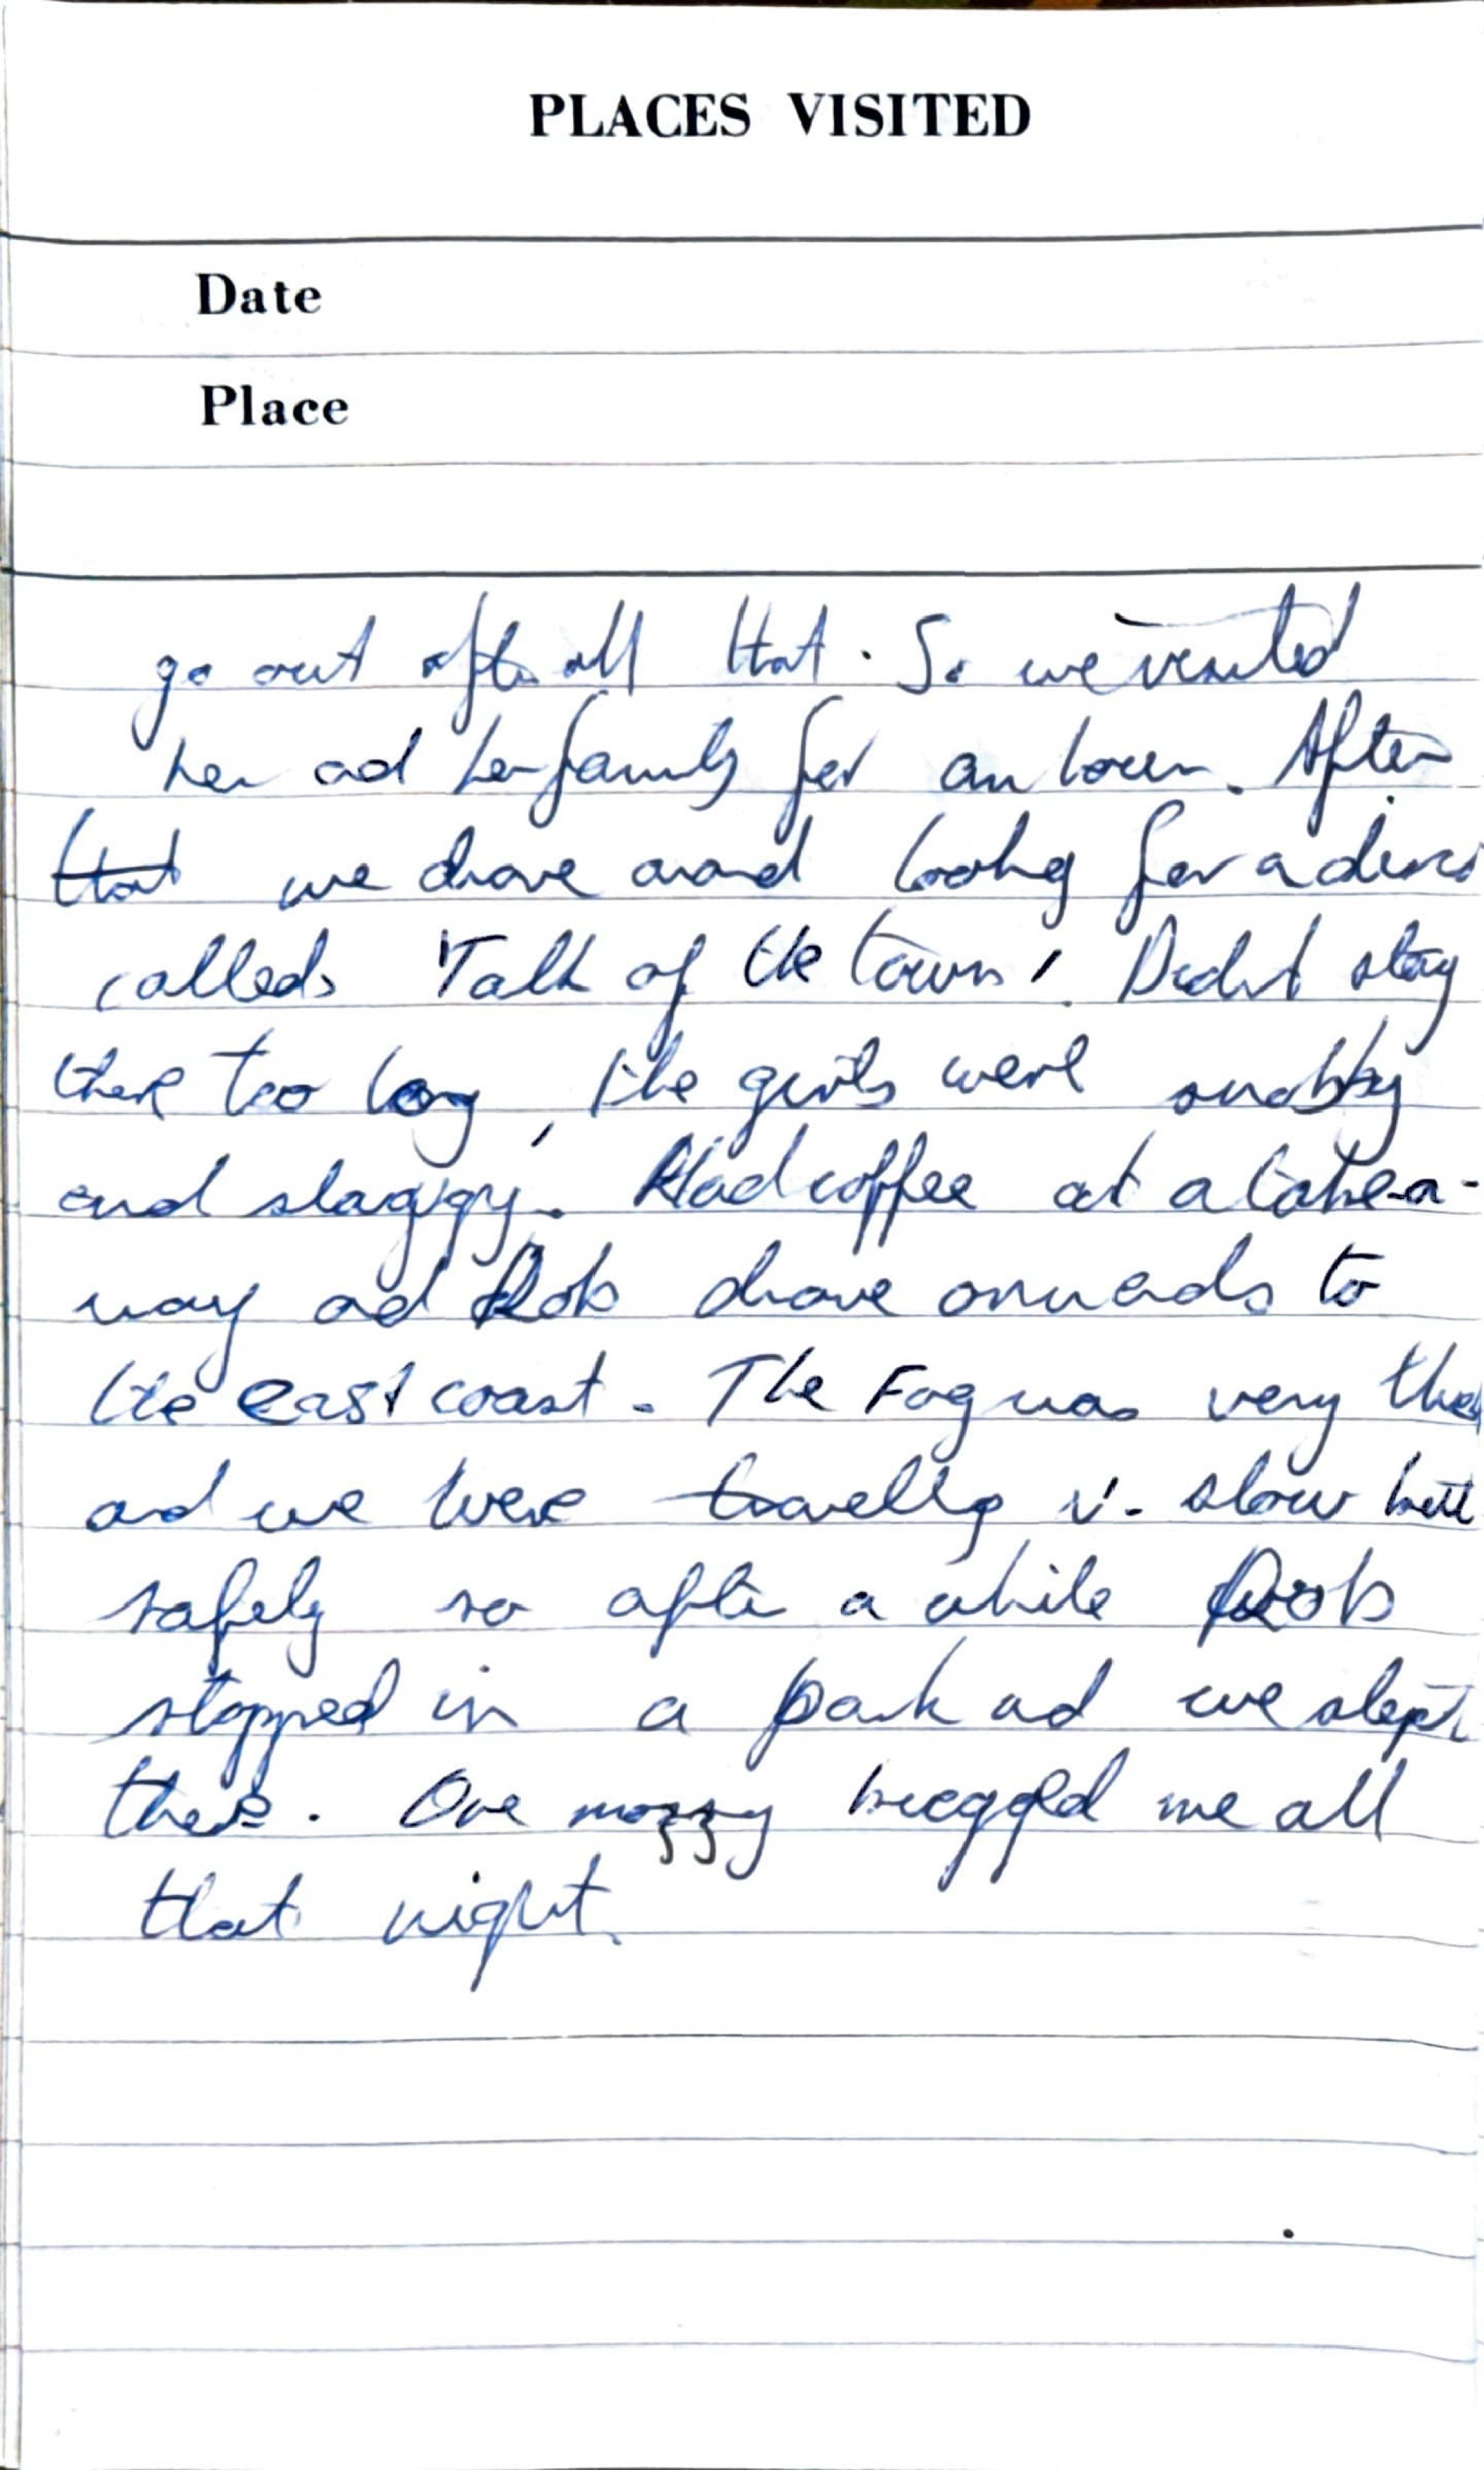 PLACES VISITED
Date
Place
go out after all that. So we visited
her and her family for an hour. After
that we drove around looking for a disco
called 'Talk of the town'. Didn't stay
there too long, the girls were snobby
and slaggy. Had coffee at a take-a-
way and Rob drove onwards to
the east coast. The Fog was very thick
and we were travelling v. slow but
safely so after a while Rob
stopped in a park and we slept
there. One mozzy bugged me all
that night.